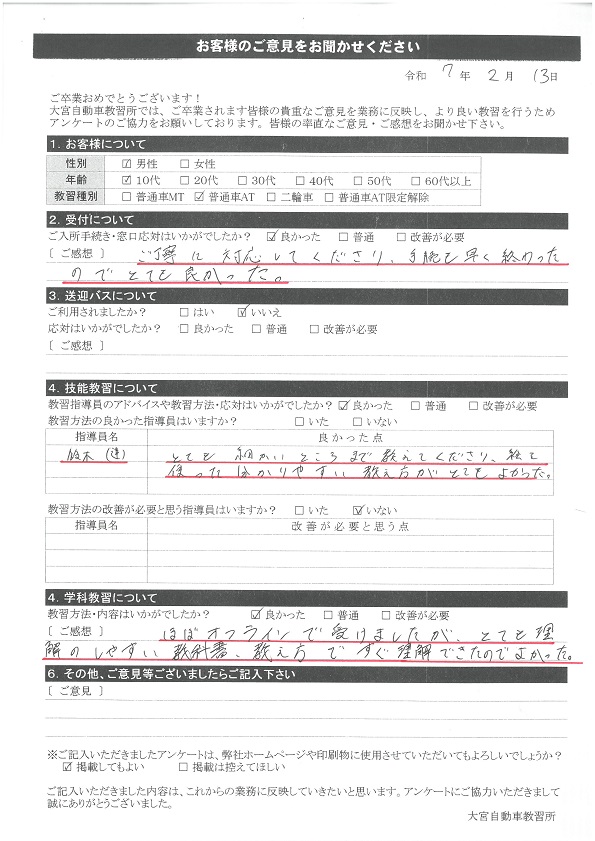 お客様のご意見をお聞かせください
令和 7 年 2 月 13 日
ご卒業おめでとうございます！
大宮自動車教習所では、ご卒業されます皆様の貴重なご意見を業務に反映し、より良い教習を行うため
アンケートのご協力をお願いしております。皆様の率直なご意見・ご感想をお聞かせ下さい。
1. お客様について
性別 ☑ 男性 □ 女性
年齢 ☑ 10代 □ 20代 □ 30代 □ 40代 □ 50代 □ 60代以上
教習種別 □ 普通車MT ☑ 普通車AT □ 二輪車 □ 普通車AT限定解除
2. 受付について
ご入所手続き・窓口応対はいかがでしたか？ ☑ 良かった □ 普通 □ 改善が必要
［ ご感想 ］ ご丁寧に対応してくださり、手続も早く終わった
のでとても良かった。
3. 送迎バスについて
ご利用されましたか？ □ はい ☑ いいえ
応対はいかがでしたか？ □ 良かった □ 普通 □ 改善が必要
［ ご感想 ］
4. 技能教習について
教習指導員のアドバイスや教習方法・応対はいかがでしたか？ ☑ 良かった □ 普通 □ 改善が必要
教習方法の良かった指導員はいますか？ □ いた □ いない
指導員名 良かった点
鈴木 とても細かいところまで教えてくださり、絵で
使った分かりやすい教え方がとてもよかった。
教習方法の改善が必要と思う指導員はいますか？ □ いた ☑ いない
指導員名 改善が必要と思う点
4. 学科教習について
教習方法・内容はいかがでしたか？ ☑ 良かった □ 普通 □ 改善が必要
［ ご感想 ］ ほぼオフラインで受けましたが、とても理
解のしやすい教科書、教え方ですぐ理解できたのでよかった。
6. その他、ご意見等ございましたらご記入下さい
［ ご意見 ］
※ご記入いただきましたアンケートは、弊社ホームページや印刷物に使用させていただいてもよろしいでしょうか？
☑ 掲載してもよい □ 掲載は控えてほしい
ご記入いただきました内容は、これからの業務に反映していきたいと思います。アンケートにご協力いただきまして
誠にありがとうございました。
大宮自動車教習所